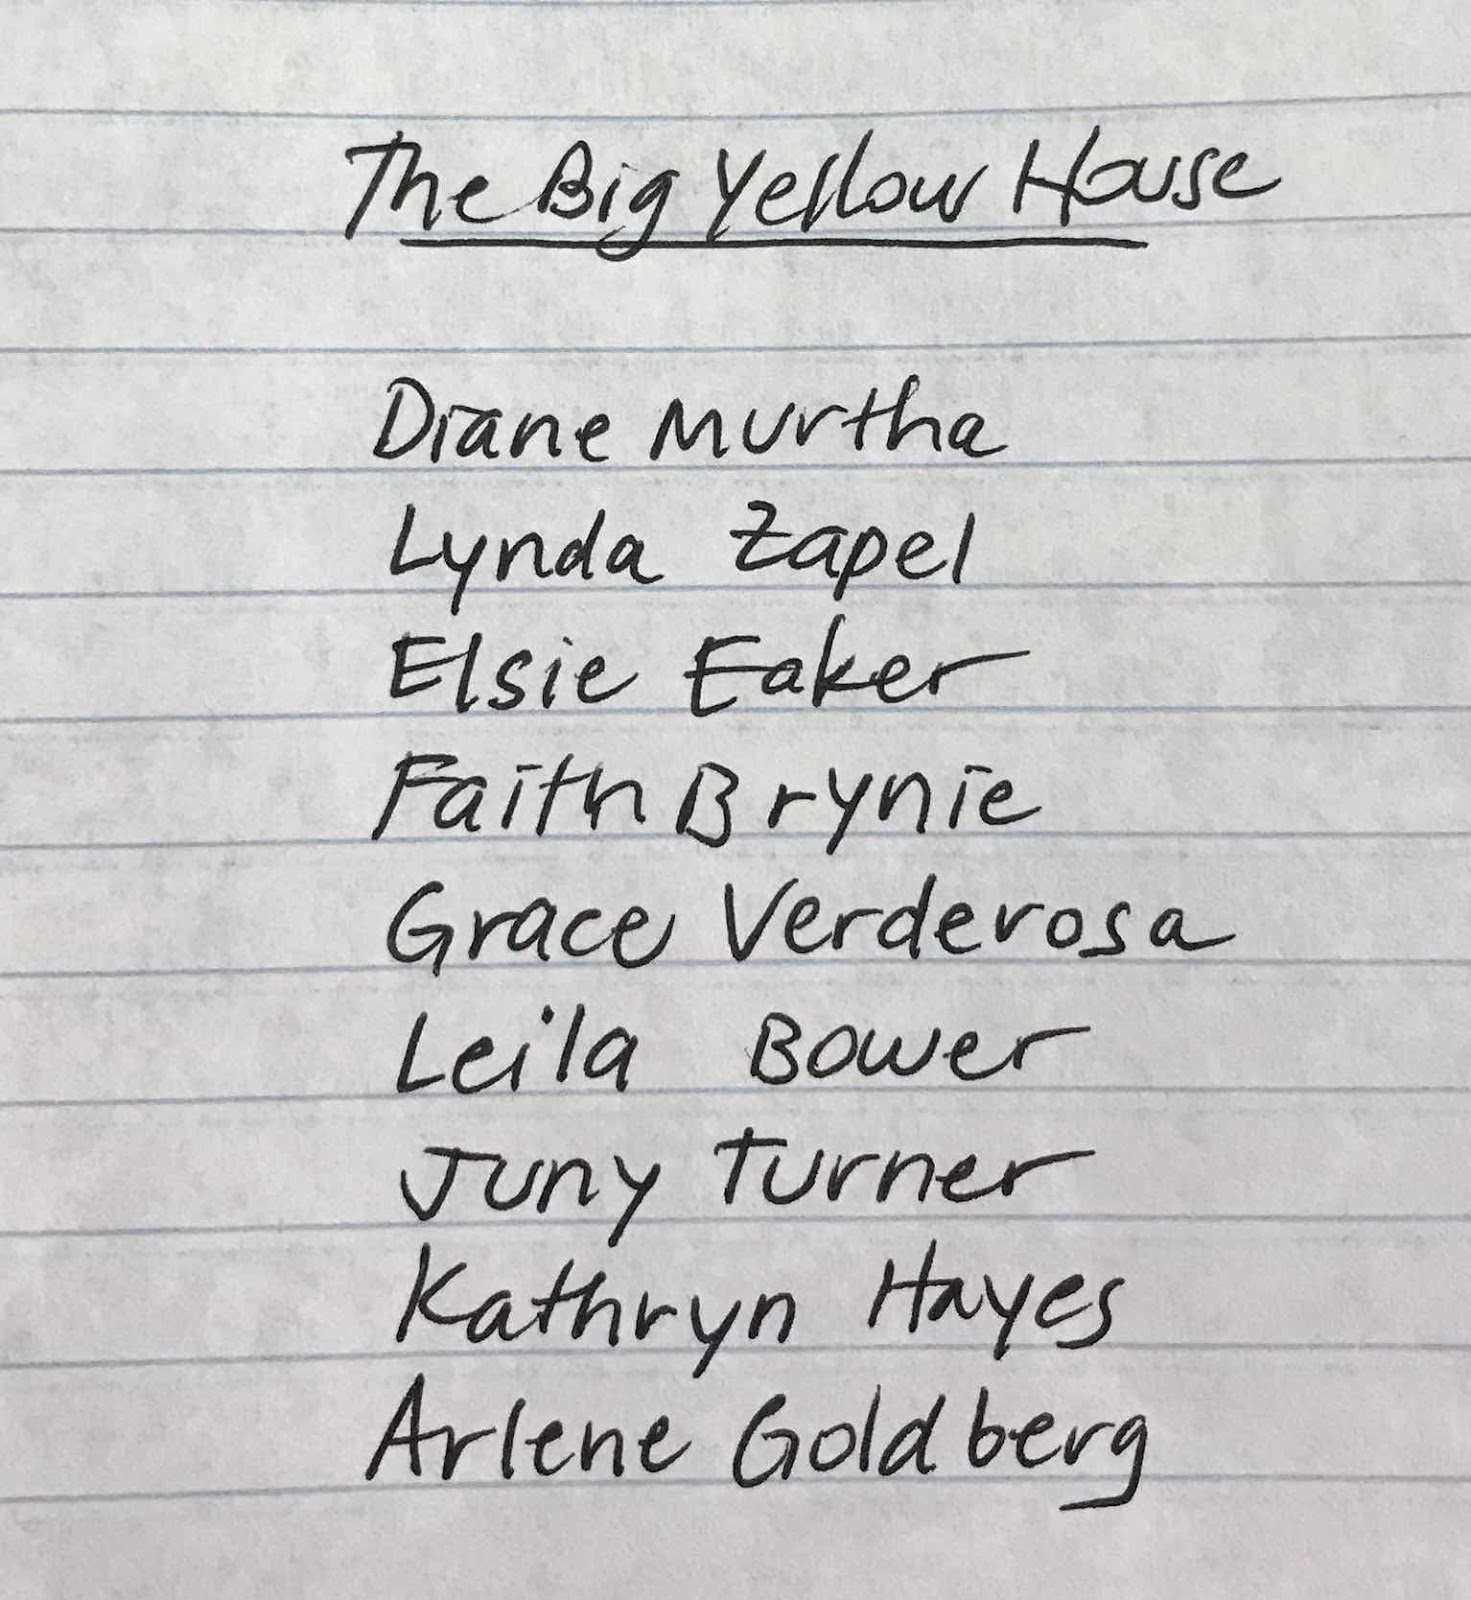 The Big Yellow House
Diane Murtha
Lynda Zapel
Elsie Eaker
Faith Brynie
Grace Verderosa
Leila Bower
Juny Turner
Kathryn Hayes
Arlene Goldberg